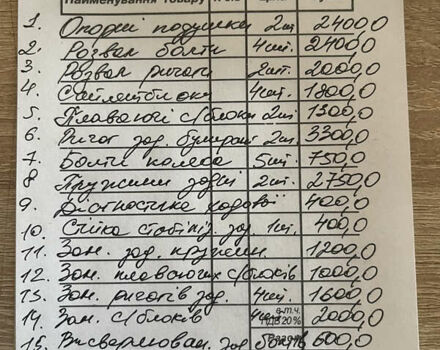 Найменування товару
1. Опорні подушки 2шт 2400,0
2. Розвал болти 4шт. 2400,0
3. Розвал ричаги 2шт. 2000,0
4. Сайлентблоки 4шт. 1800,0
5. Плаваючі с/блоки 2шт 1300,0
6. Ричаг зад. бумеранг 2шт. 3300,0
7. Болти колеса 5шт 750,0
8 Пружини задні 2шт. 2750,0
9. Діагностика ходової 400,0
10. Стійка стабіліз. зад. 1шт. 400,0
11. Зам. зад. пружин 1200,0
12 Зам. плаваючих с/блоків 1000,0
13. Зам. ричагів зад. 4шт. 1600,0
14. Зам. с/блоків 4шт 2000,0
в.т.ч. ПДВ 20%
15. Висверлюван. зад. болтів 600,0